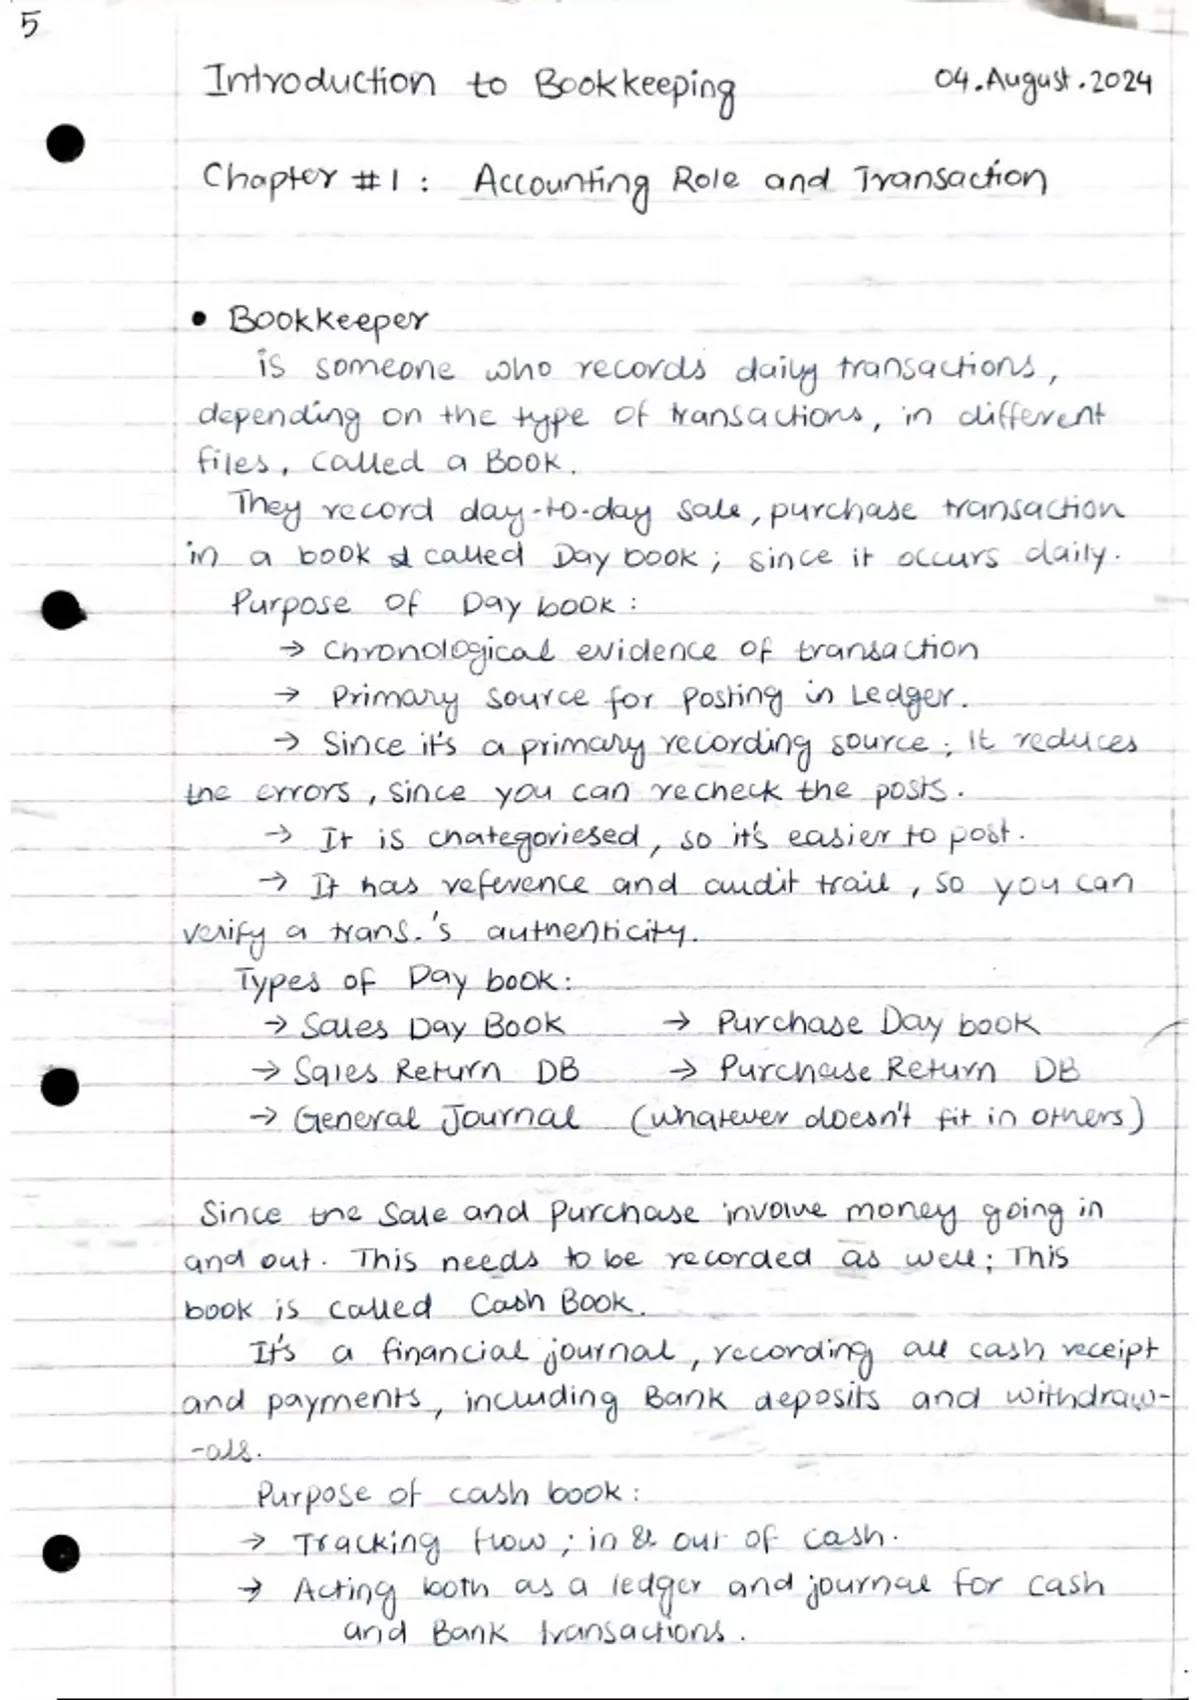 5
Introduction to Bookkeeping 04.August.2024
Chapter #1: Accounting Role and Transaction
• Bookkeeper
is someone who records daily transactions,
depending on the type of transactions, in different
files, called a Book.
They record day-to-day sale, purchase transaction
in a book called Day book; since it occurs daily.
Purpose of Day book:
→ Chronological evidence of transaction
→ Primary source for posting in Ledger.
→ Since it's a primary recording source; It reduces
the errors, since you can recheck the posts.
→ It is chategoriesed, so it's easier to post.
→ It has reference and audit trail, so you can
verify a trans.'s authenticity.
Types of Day book:
→ Sales Day Book → Purchase Day book
→ Sales Return DB → Purchase Return DB
→ General Journal (whatever doesn't fit in others)
Since the Sale and Purchase involve money going in
and out. This needs to be recorded as well; This
book is called Cash Book.
It's a financial journal, recording all cash receipt
and payments, including Bank deposits and withdraw-
-als.
Purpose of cash book:
→ Tracking flow; in & out of cash.
→ Acting both as a ledger and journal for cash
and Bank transactions.